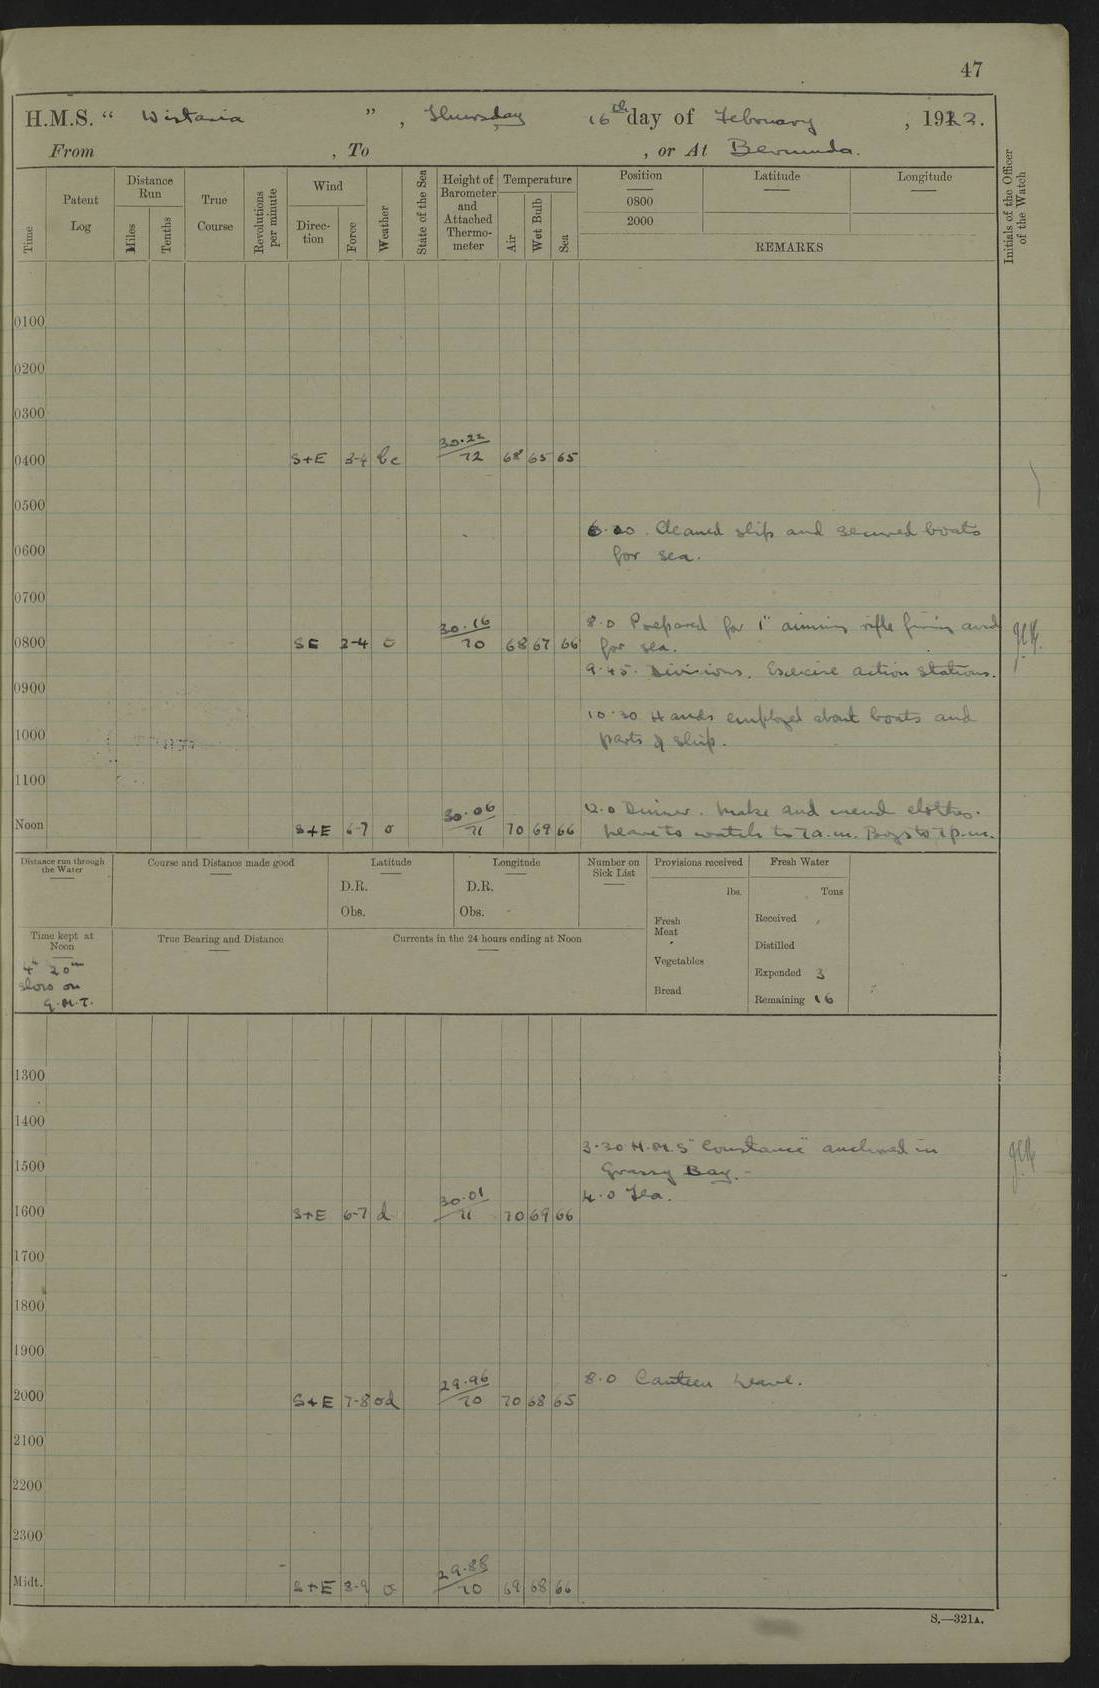 47
H.M.S. " Wistaria ", Thursday 16th day of February, 1922.
From , To , or At Bermuda.
Time
Patent Log
Distance Run
Miles
Tenths
True Course
Revolutions per minute
Wind
Direction
Force
Weather
State of the Sea
Height of Barometer and Attached Thermometer
Temperature
Air
Wet Bulb
Sea
Position
0800
2000
Latitude
Longitude
REMARKS
Initials of the Officer of the Watch
0100
0200
0300
0400 S+E 3-4 bc 30.22/72 68 65 65
0500
6.20. Cleaned ship and secured boats
0600 for sea.
0700
8.0 Prepared for 1" aiming rifle firing and
0800 SE 3-4 o 30.16/70 68 67 66 for sea.
9.45. Divisions. Exercise action stations.
0900
10.30 Hands employed about boats and
1000 parts of ship.
1100
12.0 Dinner. Make and mend clothes.
Noon S+E 6-7 o 30.06/71 70 69 66 Leave to watch to 7 a.m. Boys to 7 p.m.
Distance run through the Water
Course and Distance made good
Latitude
D.R.
Obs.
Longitude
D.R.
Obs.
Number on Sick List
Provisions received
lbs.
Fresh Meat
Vegetables
Bread
Fresh Water
Tons
Received
Distilled
Expended 3
Remaining 16
Time kept at Noon
4h 20m
slow on
G.M.T.
True Bearing and Distance
Currents in the 24 hours ending at Noon
1300
1400
3.30 H.M.S "Constance" anchored in
1500 Grassy Bay.-
4.0 Tea.
1600 S+E 6-7 d 30.01/71 70 69 66
1700
1800
1900
8.0 Canteen Leave.
2000 S+E 7-8 od 29.96/70 70 68 65
2100
2200
2300
Midt. S+E 8-9 o 29.88/70 69 68 66
S.—321A.